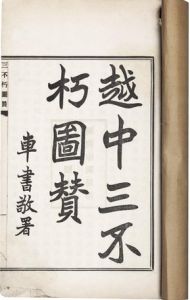 越中三不
朽圖贊
車書敬署
三不朽圖贊